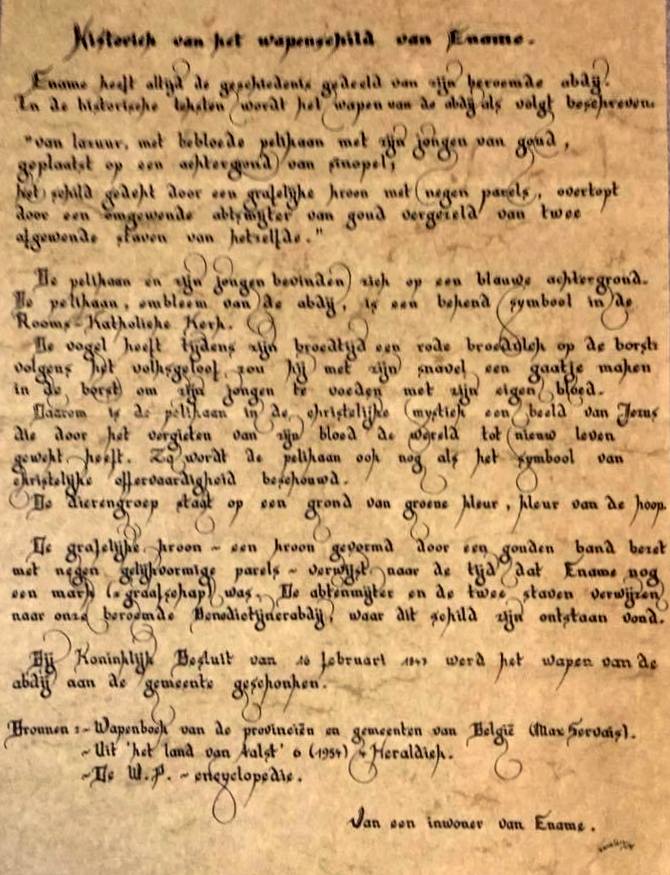 Historiek van het wapenschild van Ename.
Ename heeft altijd de geschiedenis gedeeld van zijn beroemde abdij.
In de historische teksten wordt het wapen van de abdij als volgt beschreven:
"van lazuur, met bebloede pelikaan met zijn jongen van goud,
geplaatst op een achtergrond van sinopel;
het schild gedekt door een grafelijke kroon met negen parels, overtopt
door een omgewende abtsmijter van goud vergezeld van twee
afgewende staven van hetzelfde."
De pelikaan en zijn jongen bevinden zich op een blauwe achtergrond.
De pelikaan, embleem van de abdij, is een bekend symbool in de
Rooms-Katholieke Kerk.
De vogel heeft tijdens zijn broedtijd een rode broedvlek op de borst:
volgens het volksgeloof zou hij met zijn snavel een gaatje maken
in de borst om zijn jongen te voeden met zijn eigen bloed.
Daarom is de pelikaan in de christelijke mystiek een beeld van Jezus
die door het vergieten van zijn bloed de wereld tot nieuw leven
gewekt heeft. Zo wordt de pelikaan ook nog als het symbool van
christelijke offervaardigheid beschouwd.
De dierengroep staat op een grond van groene kleur, kleur van de hoop.
De grafelijke kroon - een kroon gevormd door een gouden band bezet
met negen gelijkvormige parels - verwijst naar de tijd dat Ename nog
een mark (= graafschap) was. De abtenmijter en de twee staven verwijzen
naar onze beroemde Benedictijnerabdij, waar dit schild zijn ontstaan vond.
Bij Koninklijk Besluit van februari werd het wapen van de
abdij aan de gemeente geschonken.
Bronnen: - Wapenboek van de provinciën en gemeenten van België (Max Servais).
- Uit 'het land van Aalst' 6 (1954) - Heraldiek.
- De W.P. - encyclopedie.
Van een inwoner van Ename.